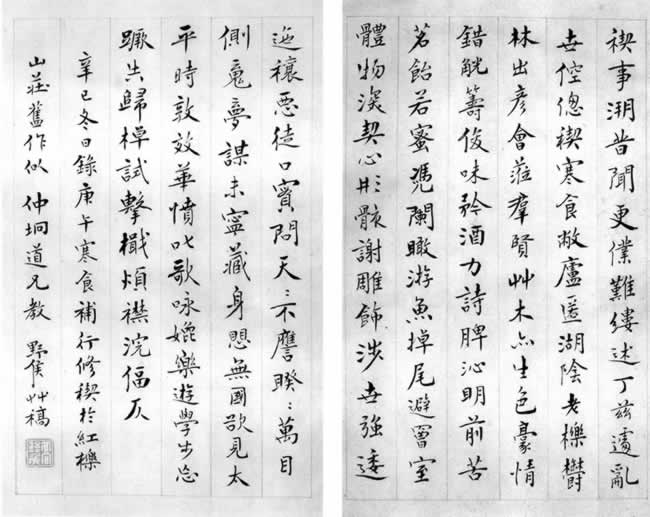 禊事溯昔聞更僕難縷述丁兹遘亂
世倥傯禊寒食敝廬匿湖陰老櫟鬱
林出彥會蒞羣賢艸木亦生色豪情
錯觥籌俊味矜酒力詩脾沁明前苦
茗飴若蜜憑闌瞰游魚掉尾避罾室
體物深契心形骸謝雕飾涉世強逶
迤穰惡徒口實問天〻不譍睽〻萬目
側䰟夢謀未寧藏身憖無國欲見太
平時敦效華憤叱歌咏媲樂遊學步忘
蹶失歸棹試擊檝煩襟浣偪仄
辛巳冬日錄庚午寒食補行修禊於紅櫟
山莊舊作似 仲坰道兄教 野侯艸稿